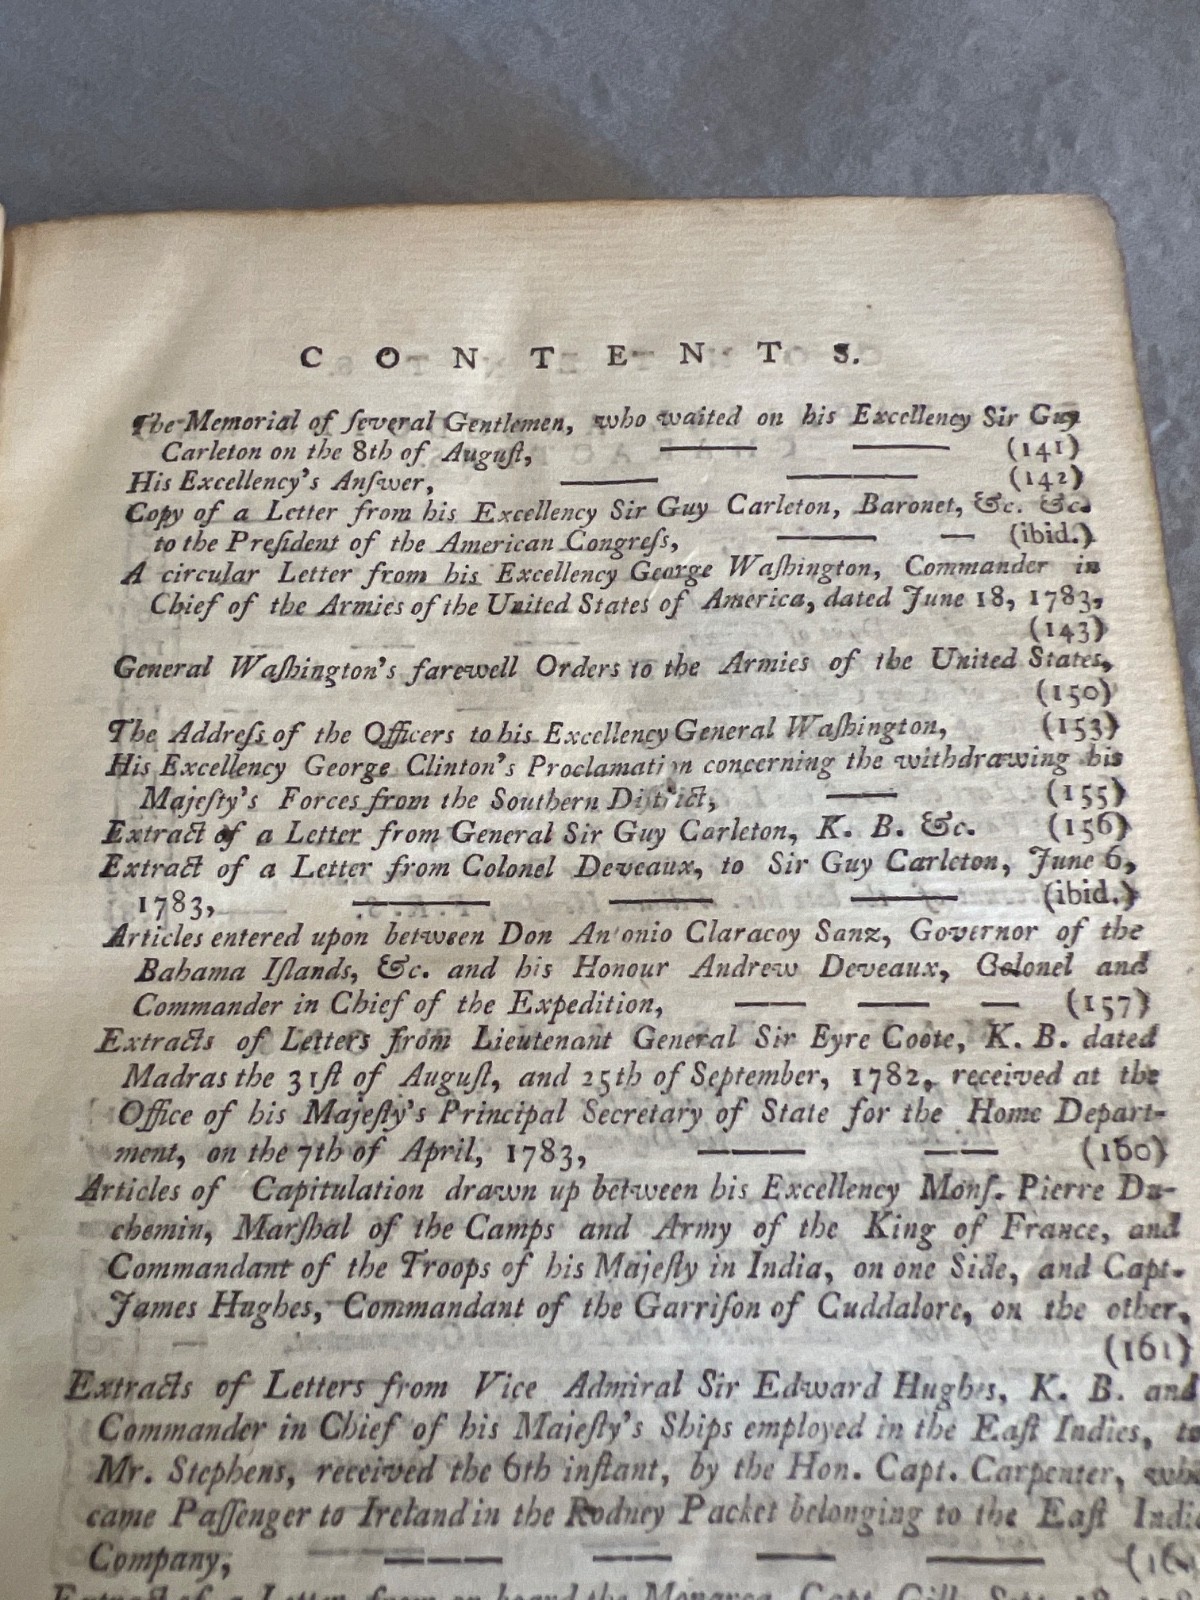 CONTENTS.
The Memorial of ſeveral Gentlemen, who waited on his Excellency Sir Guy
Carleton on the 8th of Auguſt, —— —— (141)
His Excellency's Anſwer, —— —— (142)
Copy of a Letter from his Excellency Sir Guy Carleton, Baronet, &c. &c.
to the Preſident of the American Congreſs, —— — (ibid.)
A circular Letter from his Excellency George Waſhington, Commander in
Chief of the Armies of the United States of America, dated June 18, 1783,
(143)
General Waſhington's farewell Orders to the Armies of the United States,
(150)
The Addreſs of the Officers to his Excellency General Waſhington, (153)
His Excellency George Clinton's Proclamation concerning the withdrawing his
Majeſty's Forces from the Southern Diſtrict, —— (155)
Extract of a Letter from General Sir Guy Carleton, K. B. &c. (156)
Extract of a Letter from Colonel Deveaux, to Sir Guy Carleton, June 6,
1783, —— —— —— (ibid.)
Articles entered upon between Don Antonio Claracoy Sanz, Governor of the
Bahama Iſlands, &c. and his Honour Andrew Deveaux, Colonel and
Commander in Chief of the Expedition, —— —— — (157)
Extracts of Letters from Lieutenant General Sir Eyre Coote, K. B. dated
Madras the 31ſt of Auguſt, and 25th of September, 1782, received at the
Office of his Majeſty's Principal Secretary of State for the Home Depart-
ment, on the 7th of April, 1783, ——— —— (160)
Articles of Capitulation drawn up between his Excellency Monſ. Pierre Du-
chemin, Marſhal of the Camps and Army of the King of France, and
Commandant of the Troops of his Majeſty in India, on one Side, and Capt.
James Hughes, Commandant of the Garriſon of Cuddalore, on the other,
(161)
Extracts of Letters from Vice Admiral Sir Edward Hughes, K. B. and
Commander in Chief of his Majeſty's Ships employed in the Eaſt Indies, to
Mr. Stephens, received the 6th inſtant, by the Hon. Capt. Carpenter, who
came Paſſenger to Ireland in the Rodney Packet belonging to the Eaſt India
Company, ——— —— —— ———
Extract of a Letter from on board the Monarca, Capt. Gell,